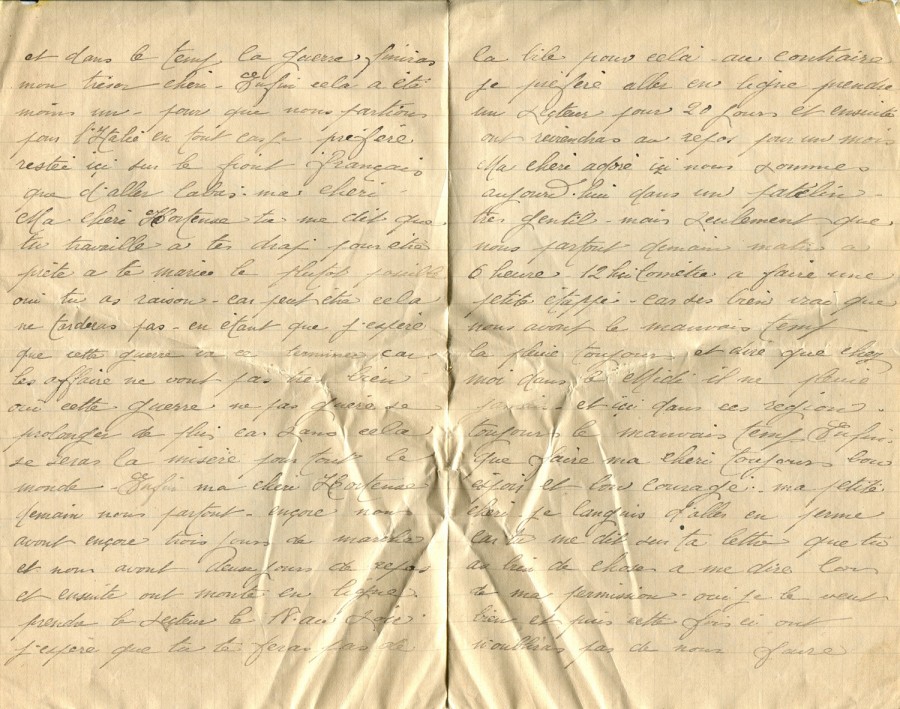 et dans le temp la guerre finiras
mon trésor cheri - Enfin cela a été
moins un - pour que nous partions
pour l'Italie en tout cas je prefere
resteé ici sur le front français
que d'aller labas - ma cheri -
Ma cheri Hortense tu me dit que
tu travaille a tes drap pour etre
prête a te mariée le plutot possible
oui tu as raison - car peut être cela
ne tarderas pas - en étant que j'espére
que cette guerre va ce terminer car
les affaire ne vont pas tres bien
oui cette guerre ne pas guère se
prolonger de plus car sans cela
se seras la misère pour tout le
monde Enfin ma cheri Hortense
demain nous partont - ençore nous
avont ençore trois jours de marche
et nous avont deux jours de repos
et ensuite ont monte en ligne
prendre le secteur le 18 au soir
j'espère que tu te feras pas de
la bile pour celà - au contraire
je préfére aller en ligne prendre
un secteur pour 20 jours et ensuite
ont reviendras au repos pour un mois
Ma cheri adoré ici nous sommes
aujourd'hui dans un patelin -
tres gentil - mais seulement que
nous partont demain matin a
6 heure - 12 kilomètre a faire une
petite étappe - car ses bien vrai que
nous avont le mauvais temp
la pluie toujours et dire que chez
moi dans le Midi il ne pleuie
jamais - et ici dans ces région -
toujours le mauvais temp Enfin -
que faire ma cheri toujours bon
espoir et bon courage - ma petite
cheri - je languis d'aller en perme
car tu me dit sur ta lettre que tu
as bien de choses a me dire lors
de ma permission - oui je le veut
bien et puis cette fois ci ont
n'oublieras pas de nous faire